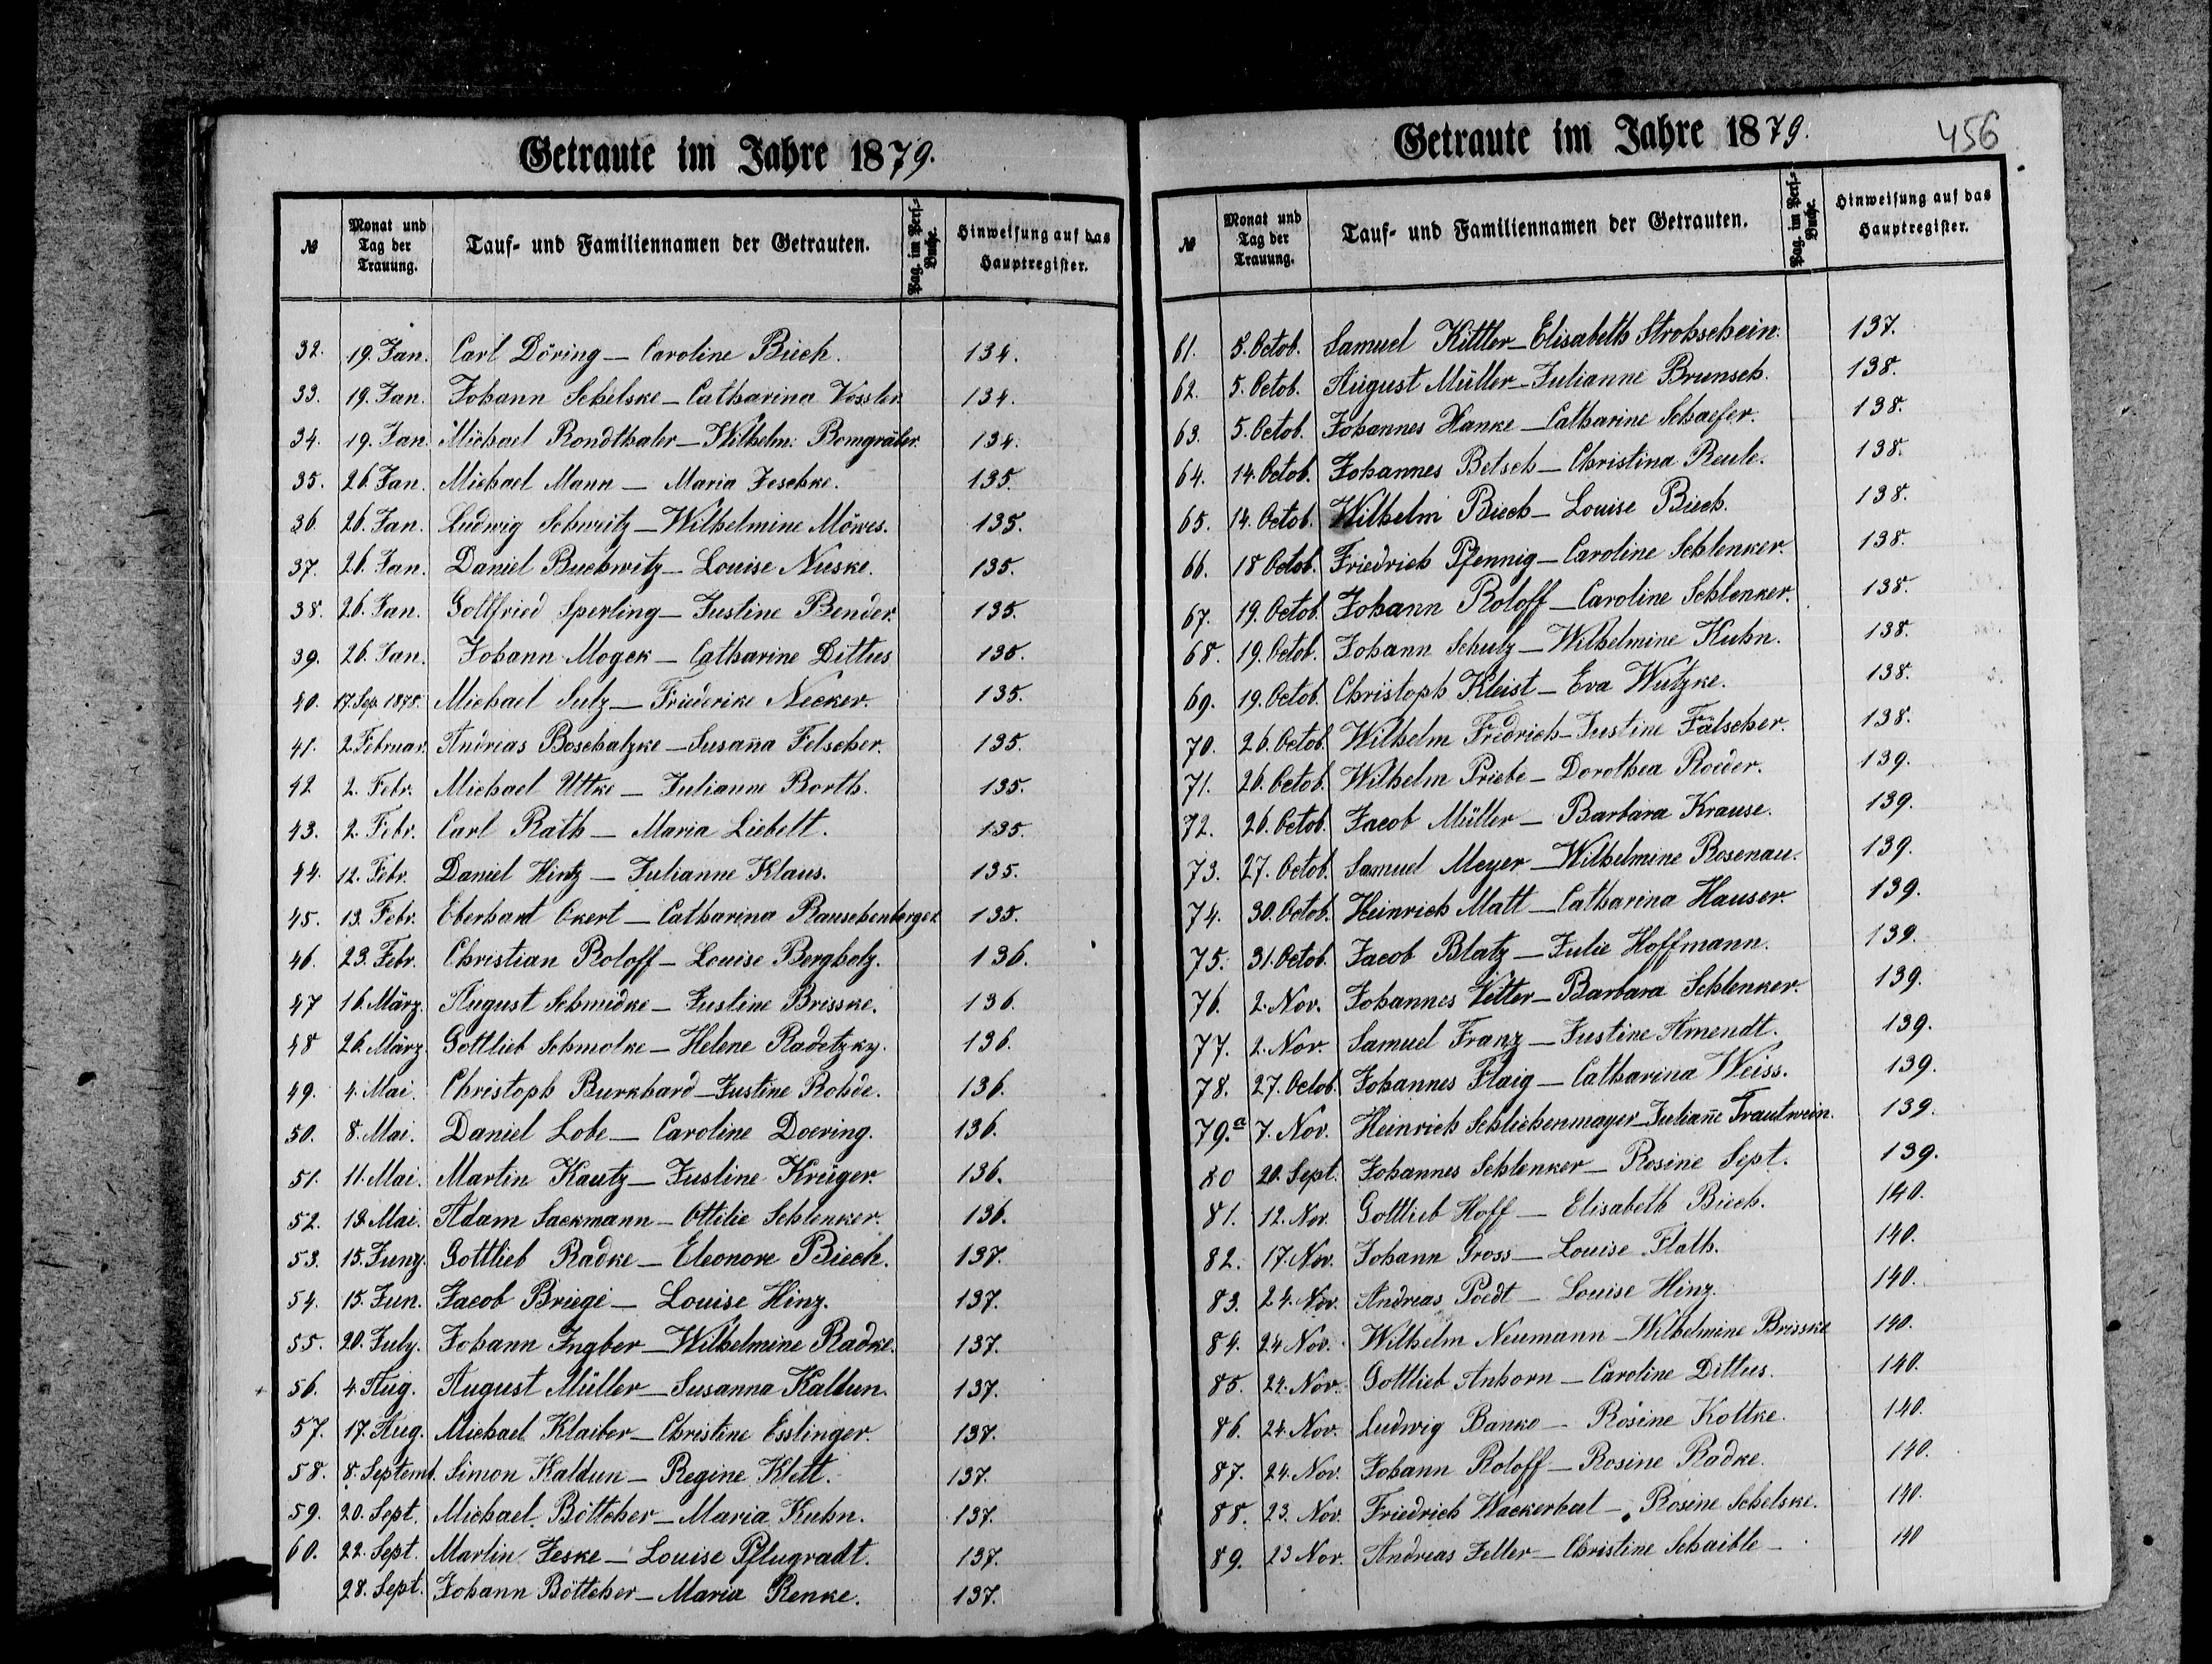 Getraute im Jahre 1879.
№ Monat und Tag der Trauung. Tauf- und Familiennamen der Getrauten. Pag. im Pers-Buche. Hinweisung auf das Hauptregister.
32. 19. Jan. Carl Döring — Caroline Biech. 134.
33. 19. Jan. Johann Schelske — Catharina Vossler. 134.
34. 19. Jan. Michael Rondthaler — Wilhelm. Bomgräler. 134.
35. 26. Jan. Michael Mann — Maria Jeschke. 135.
36. 26. Jan. Ludwig Schweitz — Wilhelmine Möwes. 135.
37. 26. Jan. Daniel Buchwitz — Louise Nuske. 135.
38. 26. Jan. Gottfried Sperling — Justine Bender. 135.
39. 26. Jan. Johann Mogck — Catharine Dittus 135.
40. 17. Sep. 1878. Michael Sulz — Friederike Necker. 135.
41. 2. Februar. Andreas Boschatzke — Susaña Felscher. 135.
42 2. Febr. Michael Uttke — Julianne Borth. 135.
43. 2. Febr. Carl Rath — Maria Liebelt. 135.
44. 12. Febr. Daniel Hintz — Julianne Klaus. 135.
45. 13. Febr. Eberhart Ckert — Catharina Rauschenberger. 135.
46. 23. Febr. Christian Roloff — Louise Bergholz. 136.
47 16. März. August Schmidke — Justine Brisske. 136.
48 26. März. Gottlieb Schmolke — Helene Radetzky. 136.
49. 4. Mai. Christoph Burkhard — Justine Rohde. 136.
50. 8. Mai. Daniel Lobe — Caroline Doering. 136.
51. 11. Mai. Martin Kautz — Justine Krüger. 136.
52. 13. Mai. Adam Sackmann — Ottilie Schlenker. 136.
53. 15. Juny. Gottlieb Radke — Eleonore Biech. 137.
54. 15. Jun. Jacob Briege — Louise Hinz. 137.
55. 20. July. Johann Ingber — Wilhelmine Radke. 137.
+ 56. 4. Aug. August Müller — Susanna Kaldun. 137.
57. 17. Aug. Michael Klaiber — Christine Esslinger. 137.
58. 8. Septemb. Simon Kaldun — Regine Klett. 137.
59. 20. Sept. Michael Böttcher — Maria Kuhn. 137.
60. 22. Sept. Martin Jeske — Louise Pflugradt. 137.
28. Sept. Johann Böttcher — Maria Renke. 137.
Getraute im Jahre 1879. 456
№ Monat und Tag der Trauung. Tauf- und Familiennamen der Getrauten. Pag. im Pers-Buche. Hinweisung auf das Hauptregister.
61. 5. Octob. Samuel Kittler — Elisabeth Strohschein. 137.
62. 5. Octob. August Müller — Julianne Brunsch. 138.
63. 5. Octob. Johannes Hanke — Catharine Schaefer. 138.
64. 14. Octob. Johannes Betsch — Christina Reule. 138.
65. 14. Octob. Wilhelm Biech — Louise Biech. 138.
66. 18 Octob. Friedrich Pfennig — Caroline Schlenker. 138.
67. 19. Octob. Johann Roloff — Caroline Schlenker. 138.
68. 19. Octob. Johann Schulz — Wilhelmine Kuhn. 138.
69. 19. Octob. Christoph Kleist — Eva Wutzke. 138.
70. 26. Octob. Wilhelm Fredrich — Justine Fälscher. 138.
71. 26. Octob. Wilhelm Priebe — Dorothea Roeder. 139.
72. 26. Octob. Jacob Müller — Barbara Krause. 139.
73. 27. Octob. Samuel Meyer — Wilhelmine Rosenau. 139.
74. 30. Octob. Heinrich Matt — Catharina Hauser. 139.
75. 31. Octob. Jacob Blatz — Julie Hoffmann. 139.
76. 2. Nov. Johannes Vetter — Barbara Schlenker. 139.
77. 2. Nov. Samuel Franz — Justine Amendt. 139.
78. 27. Octob. Johannes Flaig — Catharina Weiss. 139.
79.a 7. Nov. Heinrich Schlichenmayer — Juliañe Trautwein. 139.
80 20. Sept. Johannes Schlenker — Rosine Sept. 139.
81. 12. Nov. Gottlieb Hoff — Elisabeth Biech. 140.
82. 17. Nov. Johann Gross — Louise Flath. 140.
83. 24. Nov. Andreas Poedt — Louise Hinz. 140.
84. 24 Nov. Wilhelm Neumann — Wilhelmine Brisske 140.
85. 24. Nov. Gottlieb Anhorn — Caroline Dittus. 140.
86. 24. Nov. Ludwig Banko — Rosine Kottke. 140.
87. 24. Nov. Johann Roloff — Rosine Radke. 140.
88. 23. Nov. Friedrich Wackerhal — Rosine Schelske. 140.
89. 23 Nov. Andreas Feller — Christine Schaible — 140